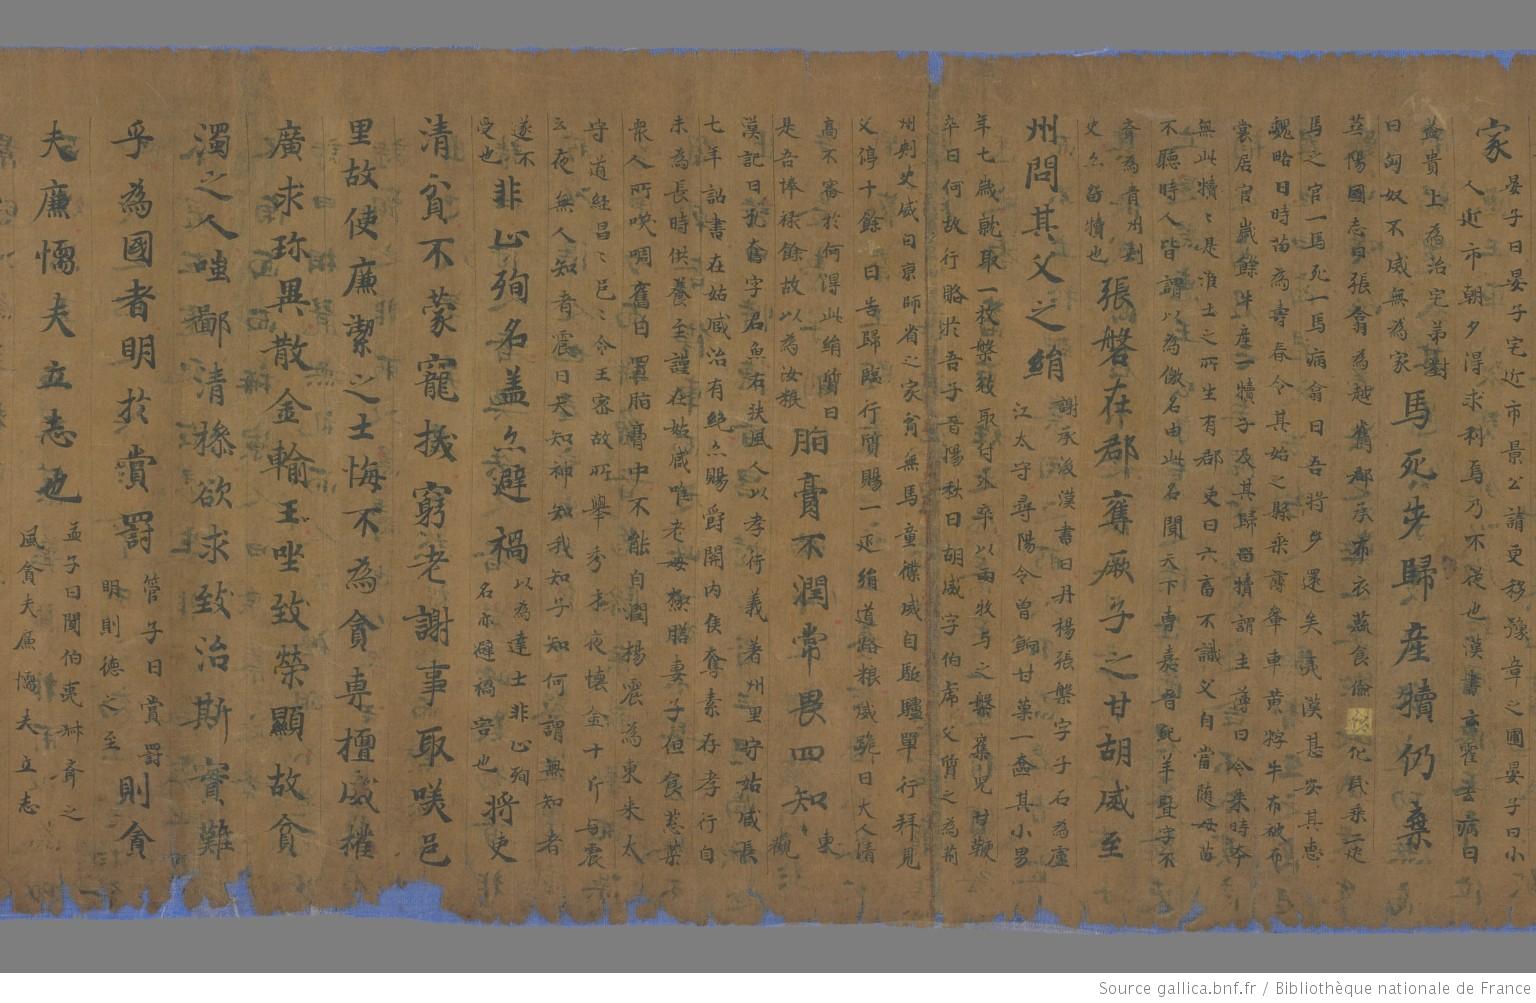 家
晏子曰晏子宅近市景公請更移豫章之圃晏子曰小
人近市朝夕得求利焉乃不從也漢書霍去病曰
益貴上為治宅弟對
曰匈奴不滅無為家
馬死步歸產犢仍棄
莒陽國志曰張翕為越嶲郡承布衣蔬食儉化民乘二
馬之官一馬死一馬病翕曰吾將步還矣夷漢甚安其惠
魏略曰時苗為壽春令其始之縣乘薄軬車黃牸牛布被
裳居官歲餘牛產一犢子及其歸留犢謂主簿曰令來時
無此犢犢是淮土之所生有郡吏曰六畜不識父自當随母苗
不聽時人皆謂以為激名由此名聞天下
齊為青州刺
史亦留犢也
張磐在郡奪厥子之甘胡威至
州問其父之絹
謝承後漢書曰丹楊張磐字子石為廬
江太守尋陽令曾餉甘菓一奩其小男
年七歲就取一枚磐奪取付外卒以兩枚与之磐奪兒甘鞭
卒曰何故行賂於吾子晉陽秋曰胡威字伯虎父質之為荊
州刺史威自京師省之家貧無馬童僕威自驅驢單行拜見
父停十餘日告歸臨行質賜一疋絹道路粮威跪曰大人清
高不審於何得此絹質曰
是吾俸祿餘故以為汝粮
脂膏不潤常畏四知
東
觀
漢記曰孔奮字君魚右扶風人以孝行義著州里守姑臧長
七年詔書在姑臧治有絶亦賜爵関内侯奮素存孝行自
未為長時供養至謹在姑臧唯老母極膳妻子但食葱菜
衆人所咲啁奮曰置脂膏中不能自潤楊震為東来太
守道経昌昌邑邑令王密故所舉秀才夜懷金十斤与震
云夜無人知者震曰天知神知我知子知何謂無知者
遂不
受也
非心殉名盖亦避禍
以為達士非心殉
名亦避禍害也
將使
清貧不蒙寵拔窮老謝事取咲邑
里故使廉潔之士悔不為貪專擅威權
廣求珎異散金輸玉坐致榮顯故貪
濁之人嗤鄙清㯹欲求致治斯實難
乎為國者明扵賞罰
管子曰賞罰
明則德之至
則貪
夫廉懦夫立志也
孟子曰聞伯夷㳤齊之
風貪夫廉懦夫立志
Source gallica.bnf.fr / Bibliothèque nationale de France